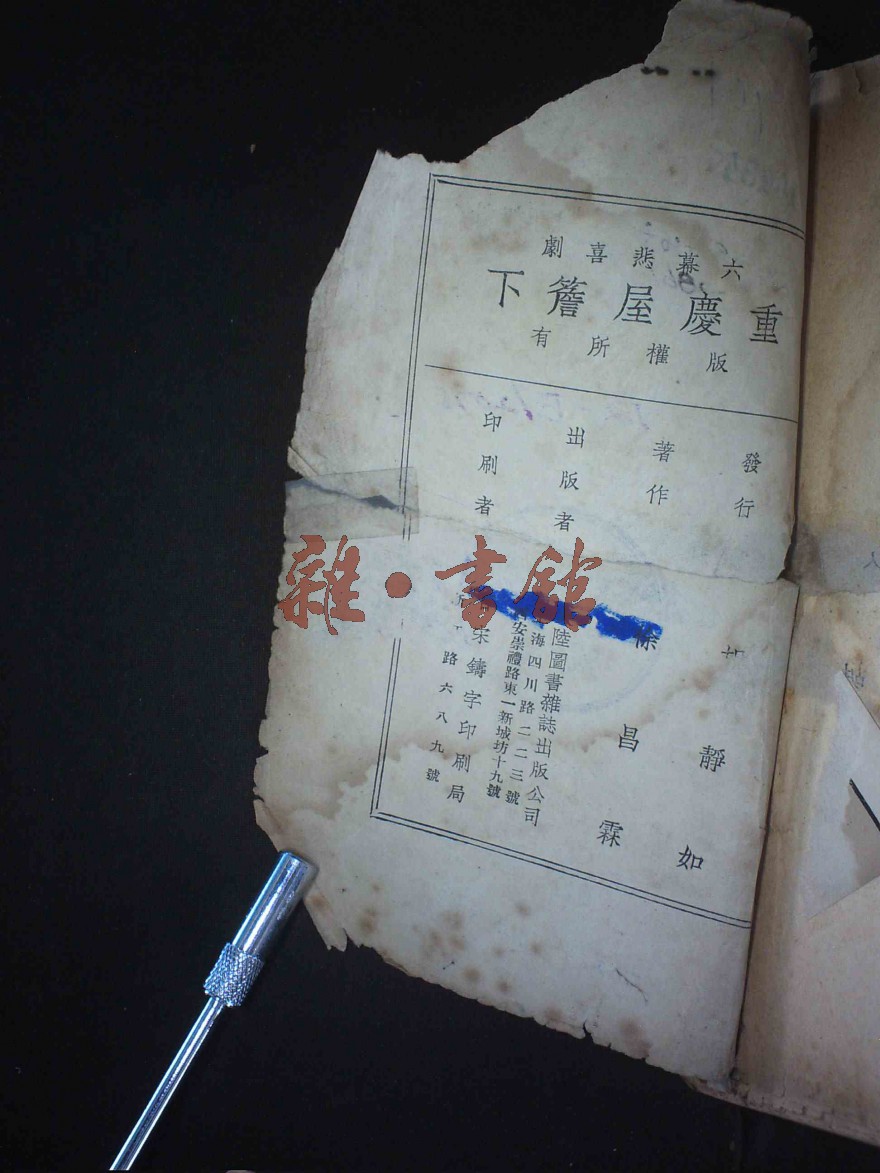 六幕悲喜劇
重慶屋簷下
版權所有
發行
著作
出版者
印刷者
靜如
徐昌霖
陸圖書雜誌出版公司
海四川路二二三號
安崇禮路東一新城坊十九號
宋鑄字印刷局
路六八九號
雜·書館